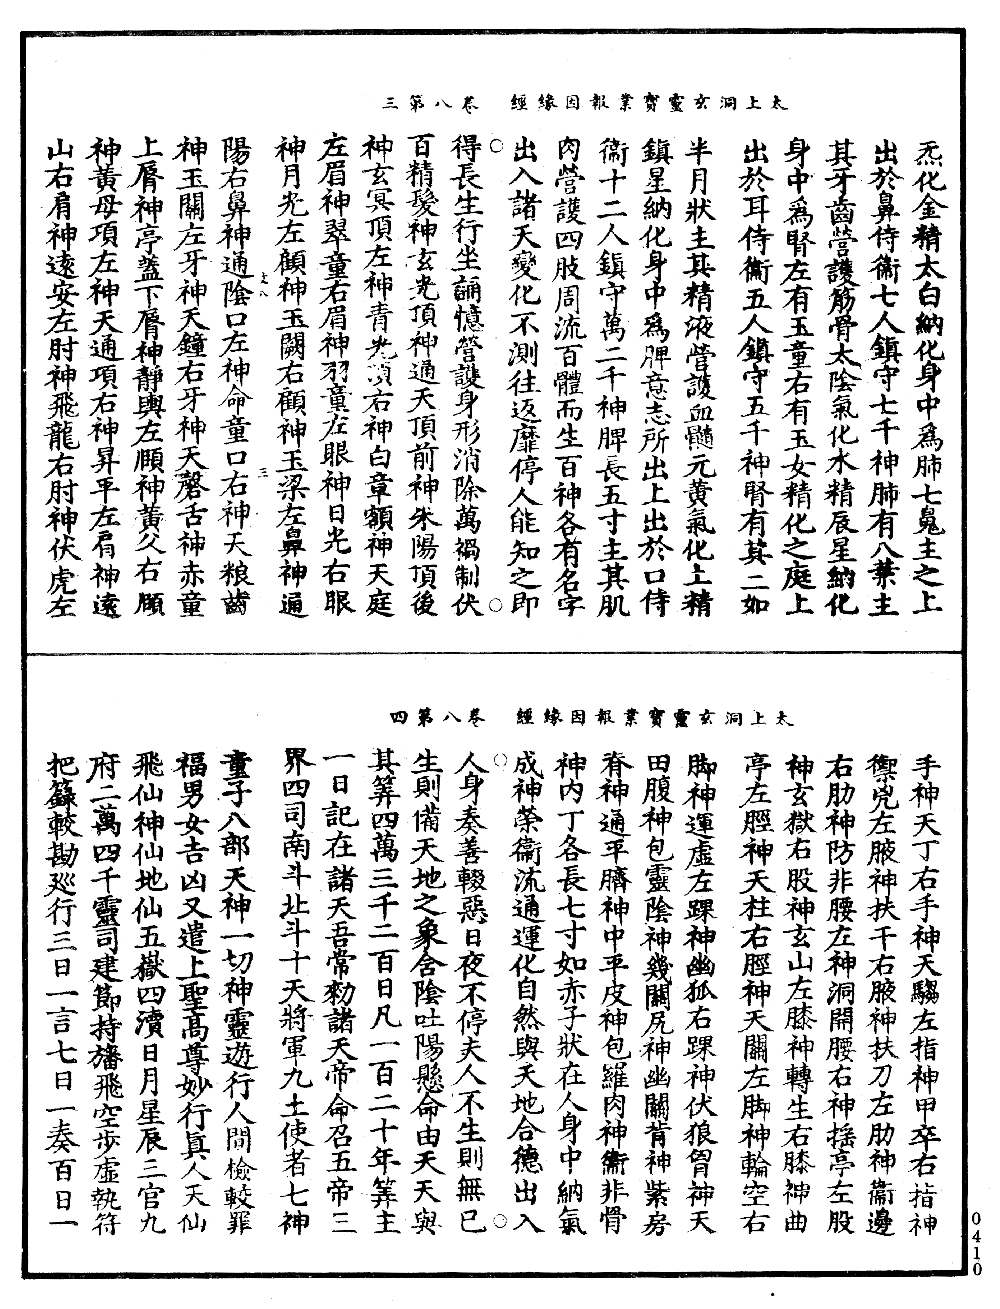 太上洞玄靈寶業報因緣經　卷八第三
炁化金精太白納化身中爲肺七魄主之上
出於鼻侍衞七人鎮守七千神肺有八葉主
其牙齒營護筋骨太陰氣化水精辰星納化
身中爲腎左有玉童右有玉女精化之庭上
出於耳侍衞五人鎮守五千神腎有其二如
半月狀主其精液營護血髓元黃氣化上精
鎮星納化身中爲脾意志所出上出於口侍
衞十二人鎮守萬二千神脾長五寸主其肌
肉營護四肢周流百體而生百神各有名字
出入諸天變化不測往返靡停人能知之即
得長生行坐誦憶營護身形消除萬禍制伏
百精髮神玄光頂神通天頂前神朱陽頂後
神玄冥頂左神青光頂右神白章額神天庭
左眉神翠童右眉神羽童左眼神日光右眼
神月光左顴神玉闕右顴神玉梁左鼻神通
陽右鼻神通陰口左神命童口右神天粮齒
神玉關左牙神天鐘右牙神天磬舌神赤童
上脣神亭蓋下脣神靜輿左頤神黃父右頤
神黃母項左神天通項右神昇平左肩神遠
山右肩神遠安左肘神飛龍右肘神伏虎左
太上洞玄靈寶業報因緣經　卷八第四
手神天丁右手神天騶左指神甲卒右指神
禦兇左腋神扶千右腋神扶刀左肋神衞邊
右肋神防非腰左神洞開腰右神搖亭左股
神玄獄右股神玄山左膝神轉生右膝神曲
亭左脛神天柱右脛神天關左脚神輪空右
脚神運虛左踝神幽狐右踝神伏狼胷神天
田腹神包靈陰神幾關尻神幽關背神紫房
脊神通平臍神中平皮神包羅肉神衞非骨
神內丁各長七寸如赤子狀在人身中納氣
成神榮衞流通運化自然與天地合德出入
人身奏善輟惡日夜不停夫人不生則無已
生則備天地之象含陰吐陽懸命由天天與
其筭四萬三千二百日凡一百二十年筭主
一日記在諸天吾常勑諸天帝命召五帝三
界四司南斗北斗十天將軍九土使者七神
童子八部天神一切神靈遊行人間檢較罪
福男女吉凶又遣上聖高尊妙行真人天仙
飛仙神仙地仙五嶽四瀆日月星辰三官九
府二萬四千靈司建節持旛飛空步虛執符
把籙較勘廵行三日一言七日一奏百日一
0410